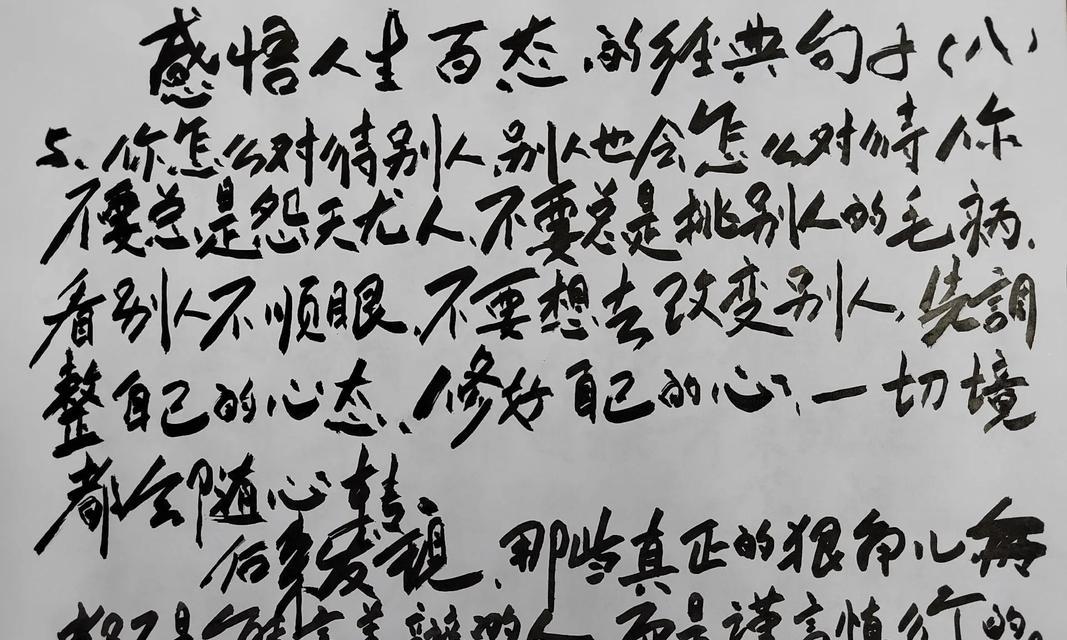 感悟人生百态的经典句子(八)
5、你怎么对待别人,别人也会怎么对待你
不要总是怨天尤人、不要总是挑别人的毛病、
看别人不顺眼,不要想去改变别人,先調
整自己的心态、修好自己的心,一切境
都会即随心转。
后来发现,那些真正的狠角儿
都不是能言善辩的人,而是谨言慎行的